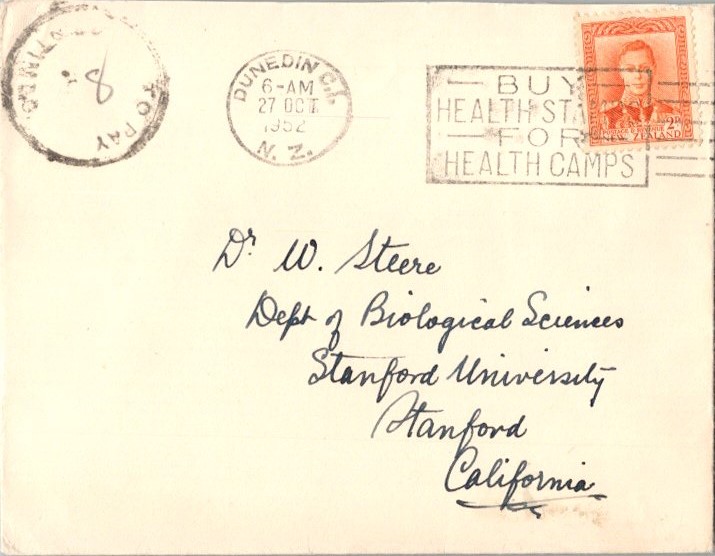 CENTIMES
8
TO PAY
DUNEDIN C.1.
6-AM
27 OCT
1952
N. Z.
BUY
HEALTH STA
FOR
HEALTH CAMPS
2D
ZEALAND
Dr W. Steere
Dept of Biological Sciences
Stanford University
Stanford
California